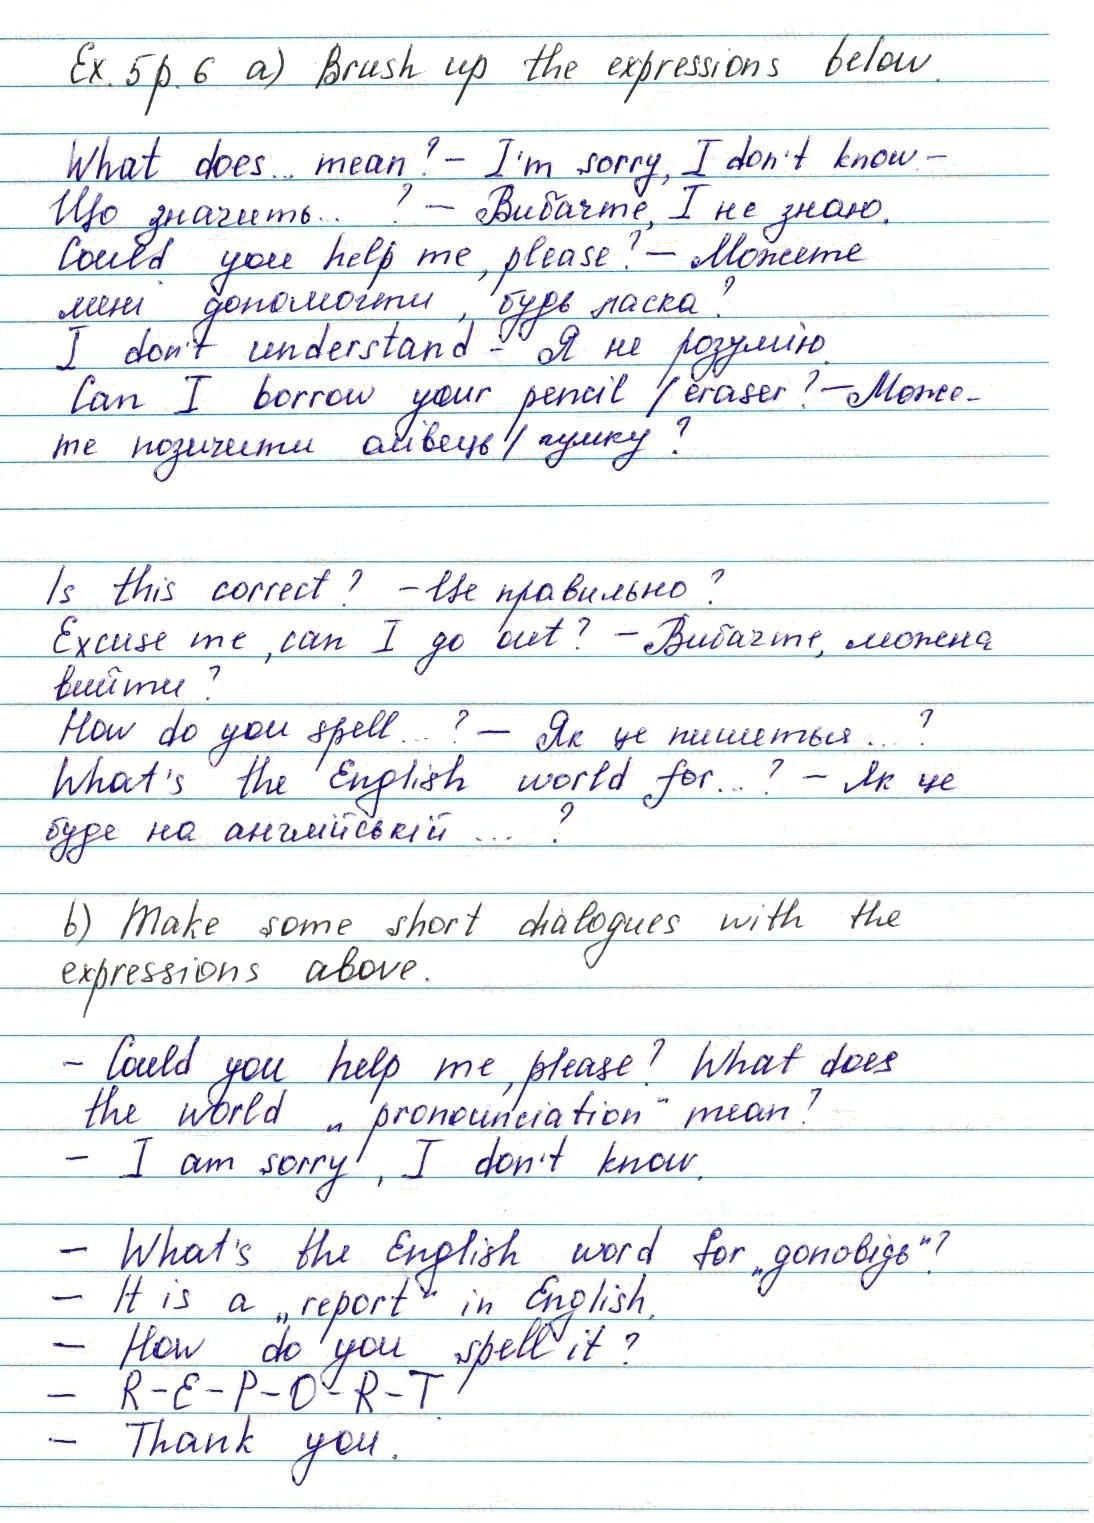 Ex. 5 p. 6 a) Brush up the expressions below.
What does... mean? - I'm sorry, I don't know -
Що значить... ? - Вибачте, I не знаю.
Could you help me, please? - Можете
мені допомогти, будь ласка?
I don't understand - Я не розумію.
Can I borrow your pencil / eraser? - Може-
те позичити олівець / гумку?
Is this correct? - Це правильно?
Excuse me, can I go out? - Вибачте, можна
вийти?
How do you spell...? - Як це пишеться... ?
What's the English world for...? - Як це
буде на англійській ... ?
b) Make some short dialogues with the
expressions above.
- Could you help me, please? What does
the world „pronounciation" mean?
- I am sorry, I don't know.
- What's the English word for „доповідь"?
- It is a „report" in English.
- How do you spell it?
- R-E-P-O-R-T.
- Thank you.